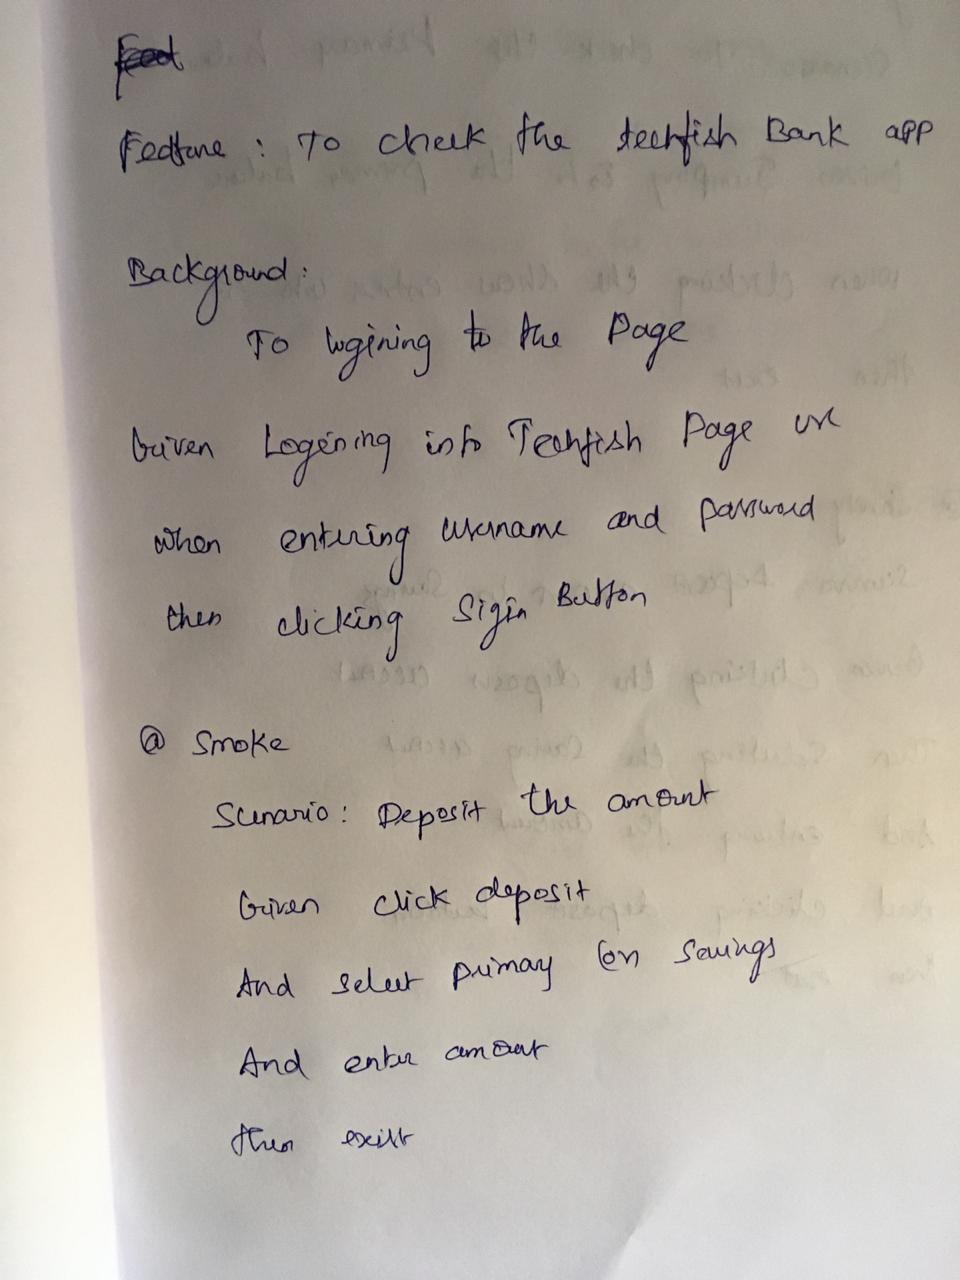 Feature : To check the techfish Bank app
Background :
To logining to the Page
Given Logening into Techfish Page
when entering username and password
then clicking Sigin Button
@ Smoke
Scenario : Deposit the amount
Given click deposit
And select primay (or) Savings
And enter amount
then exist